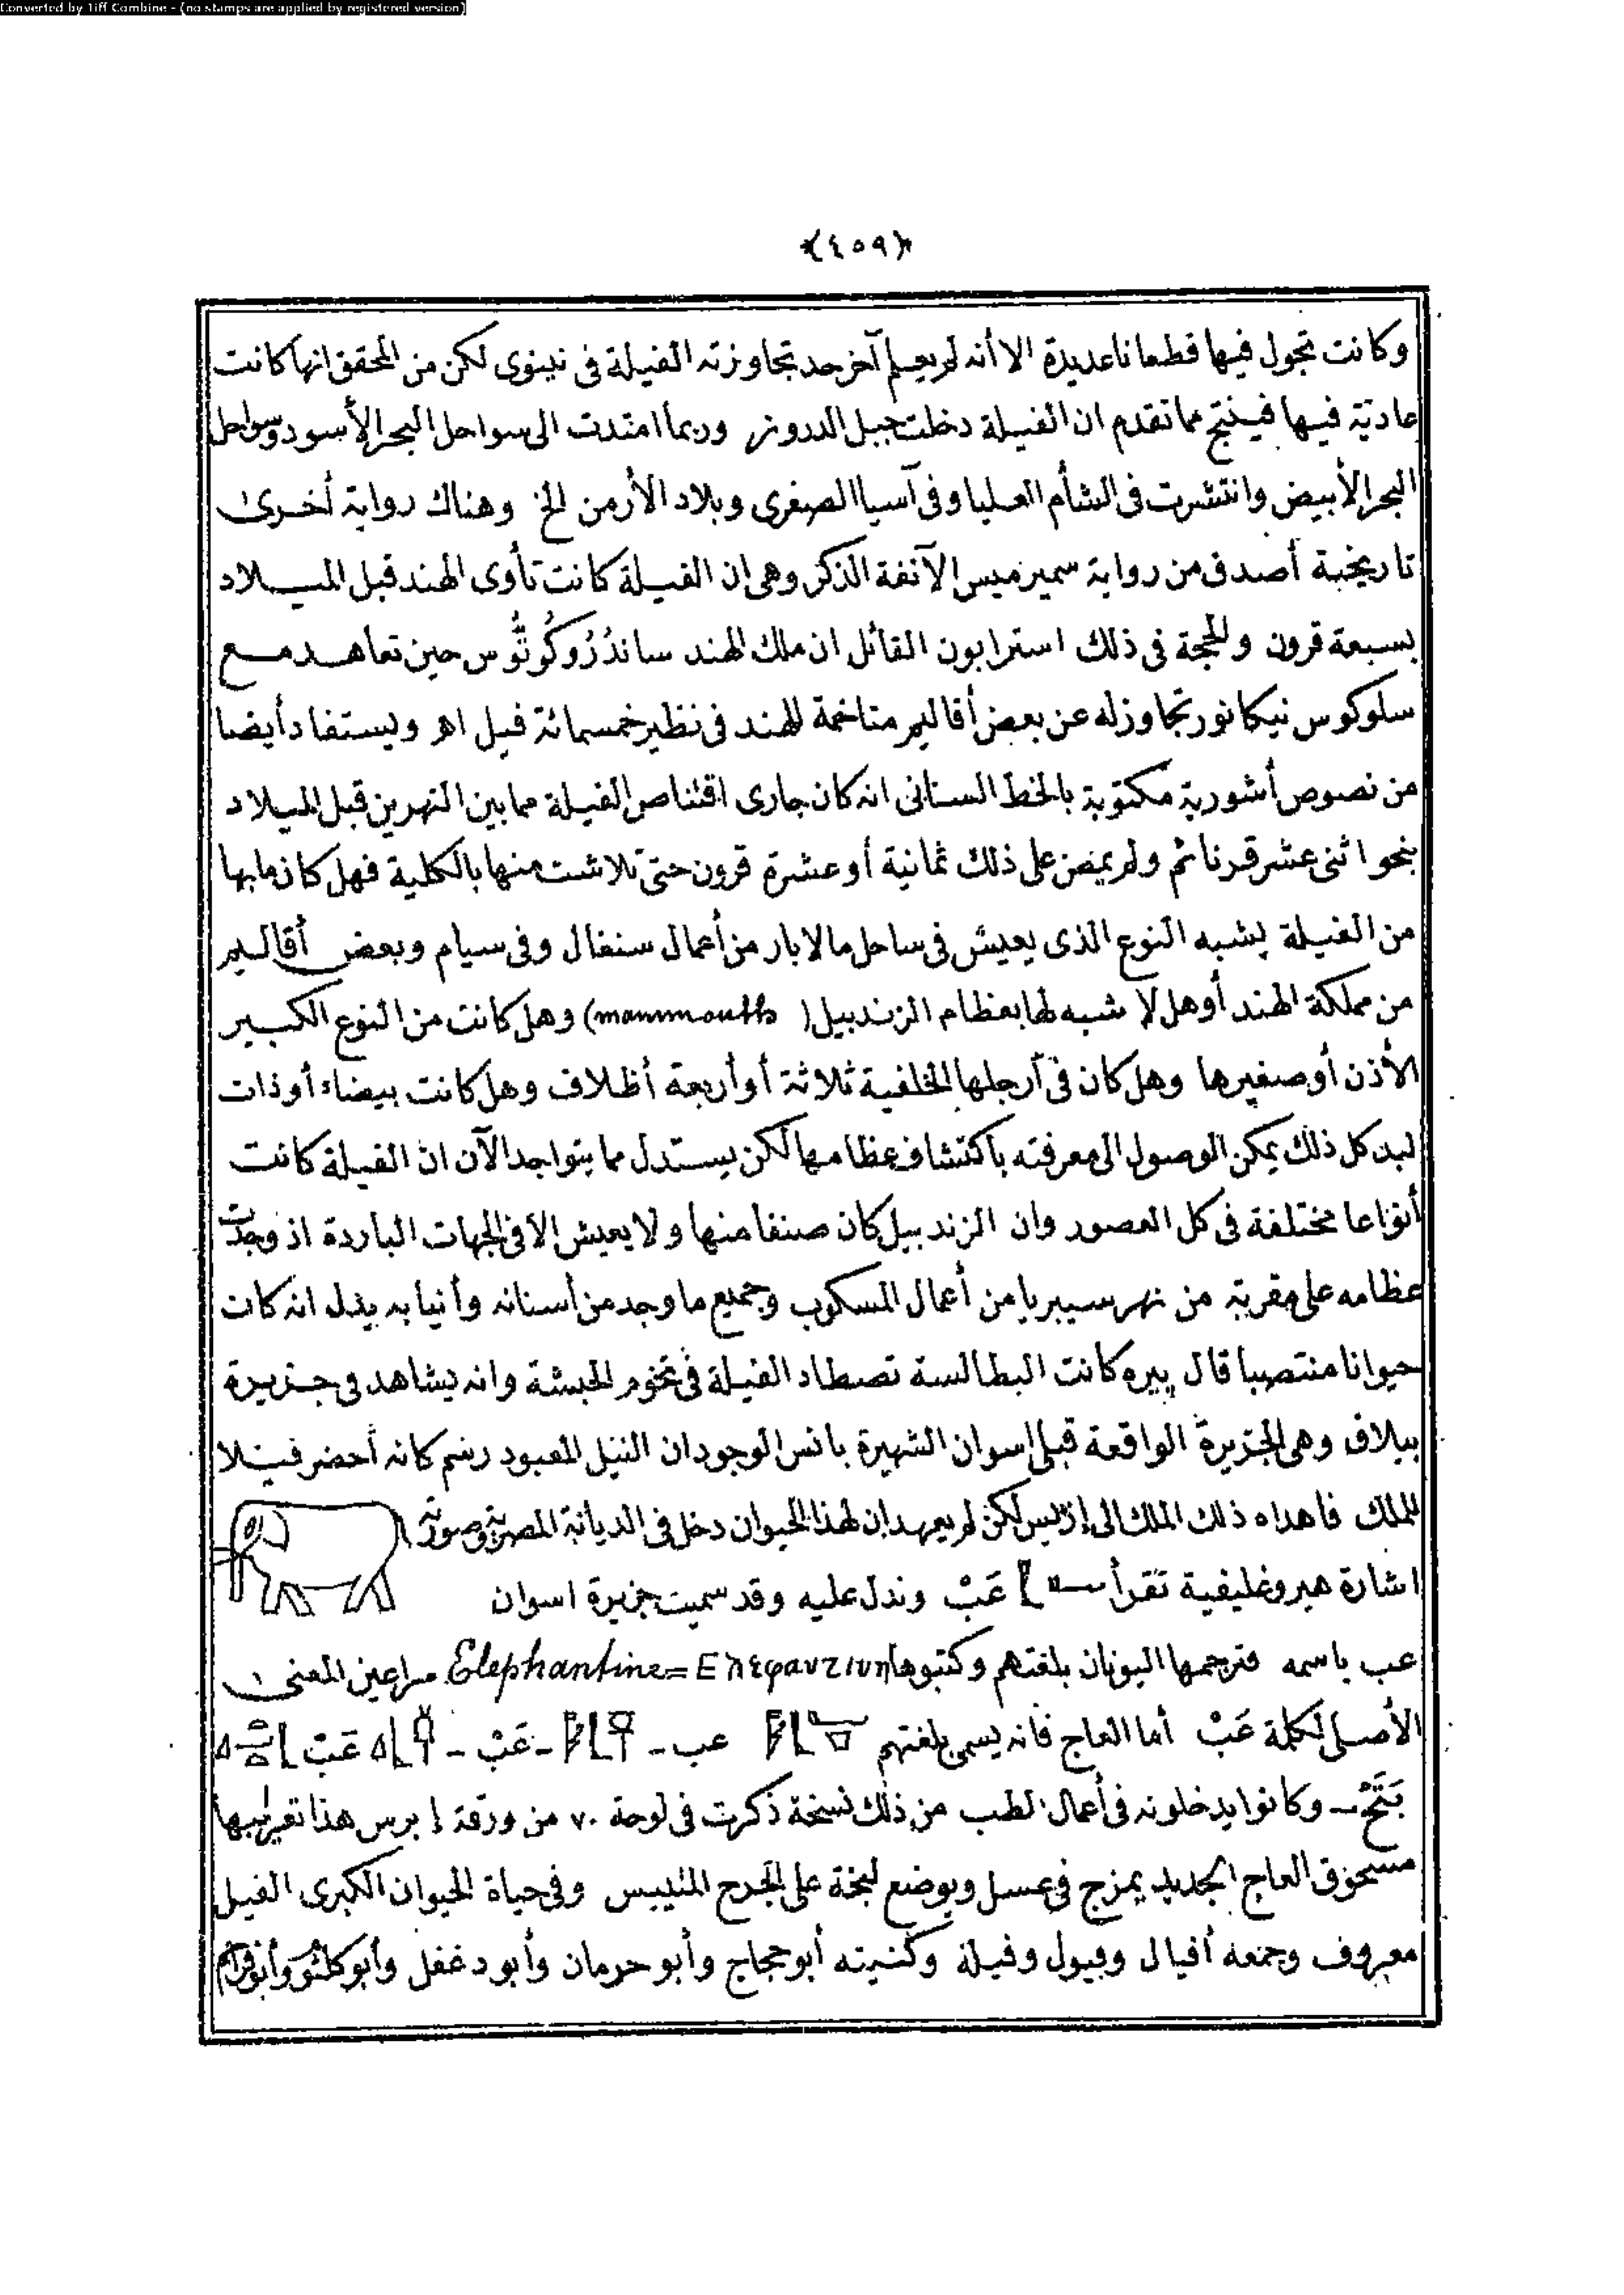 Converted by Tiff Combine - (no stamps are applied by registered version)
﴿٤٥٩﴾
وكانت تجول فيها قطعانا عديدة الا أنه لم يعلم آخر حد تجاوزته الفيلة فى نينوى لكن من المحقق انها كانت
عادتة فيها فينتج مما تقدم ان الفيلة دخلت جبل الدروز وربما امتدت الى سواحل البحر الأسود وسواحل
البحر الأبيض وانتشرت فى الشأم العليا وفى آسيا الصغرى وبلاد الأرمن الخ وهناك رواية أخرى
تاريخية أصدق من رواية سميرميس الآنفة الذكر وهى ان الفيلة كانت تأوى الهند قبل الميلاد
بسبعة قرون والحجة فى ذلك استرابون القائل ان ملك الهند ساندُرُوكُوتُّوس حين تعاهد مع
سلوكوس نيكانور تجاوز له عن بعض أقاليم متاخمة للهند فى نظير خمسمائة فيل اهـ ويستفاد أيضا
من نصوص أشورية مكتوبة بالخط السنانى انه كان جارى اقتناص الفيلة مما بين النهرين قبل الميلاد
بنحو اثنى عشر قرنا ثم ولم يمض على ذلك ثمانية أو عشرة قرون حتى تلاشت منها بالكلية فهل كان ما بها
من الفيلة يشبه النوع الذى يعيش فى ساحل مالابار من أعمال سنغال وفى سيام وبعض أقاليم
من مملكة الهند أو هل لا شبه لها بعظام الزندبيل (mammouth) وهل كانت من النوع الكبير
الأذن أو صغيرها وهل كان فى أرجلها الخلفية ثلاثة أو أربعة أظلاف وهل كانت بيضاء أو ذات
لبد كل ذلك يمكن الوصول الى معرفته باكتشاف عظامها لكن يستدل مما يتواجد الآن ان الفيلة كانت
أنواعا مختلفة فى كل العصور وان الزندبيل كان صنفا منها ولا يعيش الا فى الجهات الباردة اذ وجدت
عظامه على مقربة من نهر سيبريا من أعمال المسكوب وجميع ما وجد من أسنانه وأنيابه يدل انه كان
حيوانا منتصبا قال پيره كانت البطالسة تصطاد الفيلة فى تخوم الحبشة وانه يشاهد فى جزيرة
بيلاق وهى الجزيرة الواقعة قبلى اسوان الشهيرة بانس الوجود ان النيل المعبود رسم كانه أحضر فيلا
للملك فاهداه ذلك الملك الى إزيس لكن لم يعهد ان لهذا الحيوان دخل فى الديانة المصرية وصورته
اشارة هيروغليفية تقرأ عَبْ وتدل عليه وقد سميت جزيرة اسوان
عب باسمه فترجمها اليونان بلغتهم وكتبوها Elephantine=Ελεφαντινη مراعين المعنى
الأصلى لكلمة عَبْ أما العاج فانه يسمى بلغتهم عب - عَبْ - عَبْ
بَتَحْ - وكانوا يدخلونه فى أعمال الطب من ذلك نسخة ذكرت فى لوحة ٧٠ من ورقة إبرس هذا تعريبها
مسحوق العاج الجديد يمزج فى عسل ويوضع لبخة على الجرح المتيبس وفى حياة الحيوان الكبرى الفيل
معروف وجمعه أفيال وفيول وفيلة وكنيته أبو حجاج وأبو حرمان وأبو دغفل وأبو كلثوم وأبو مزاحم